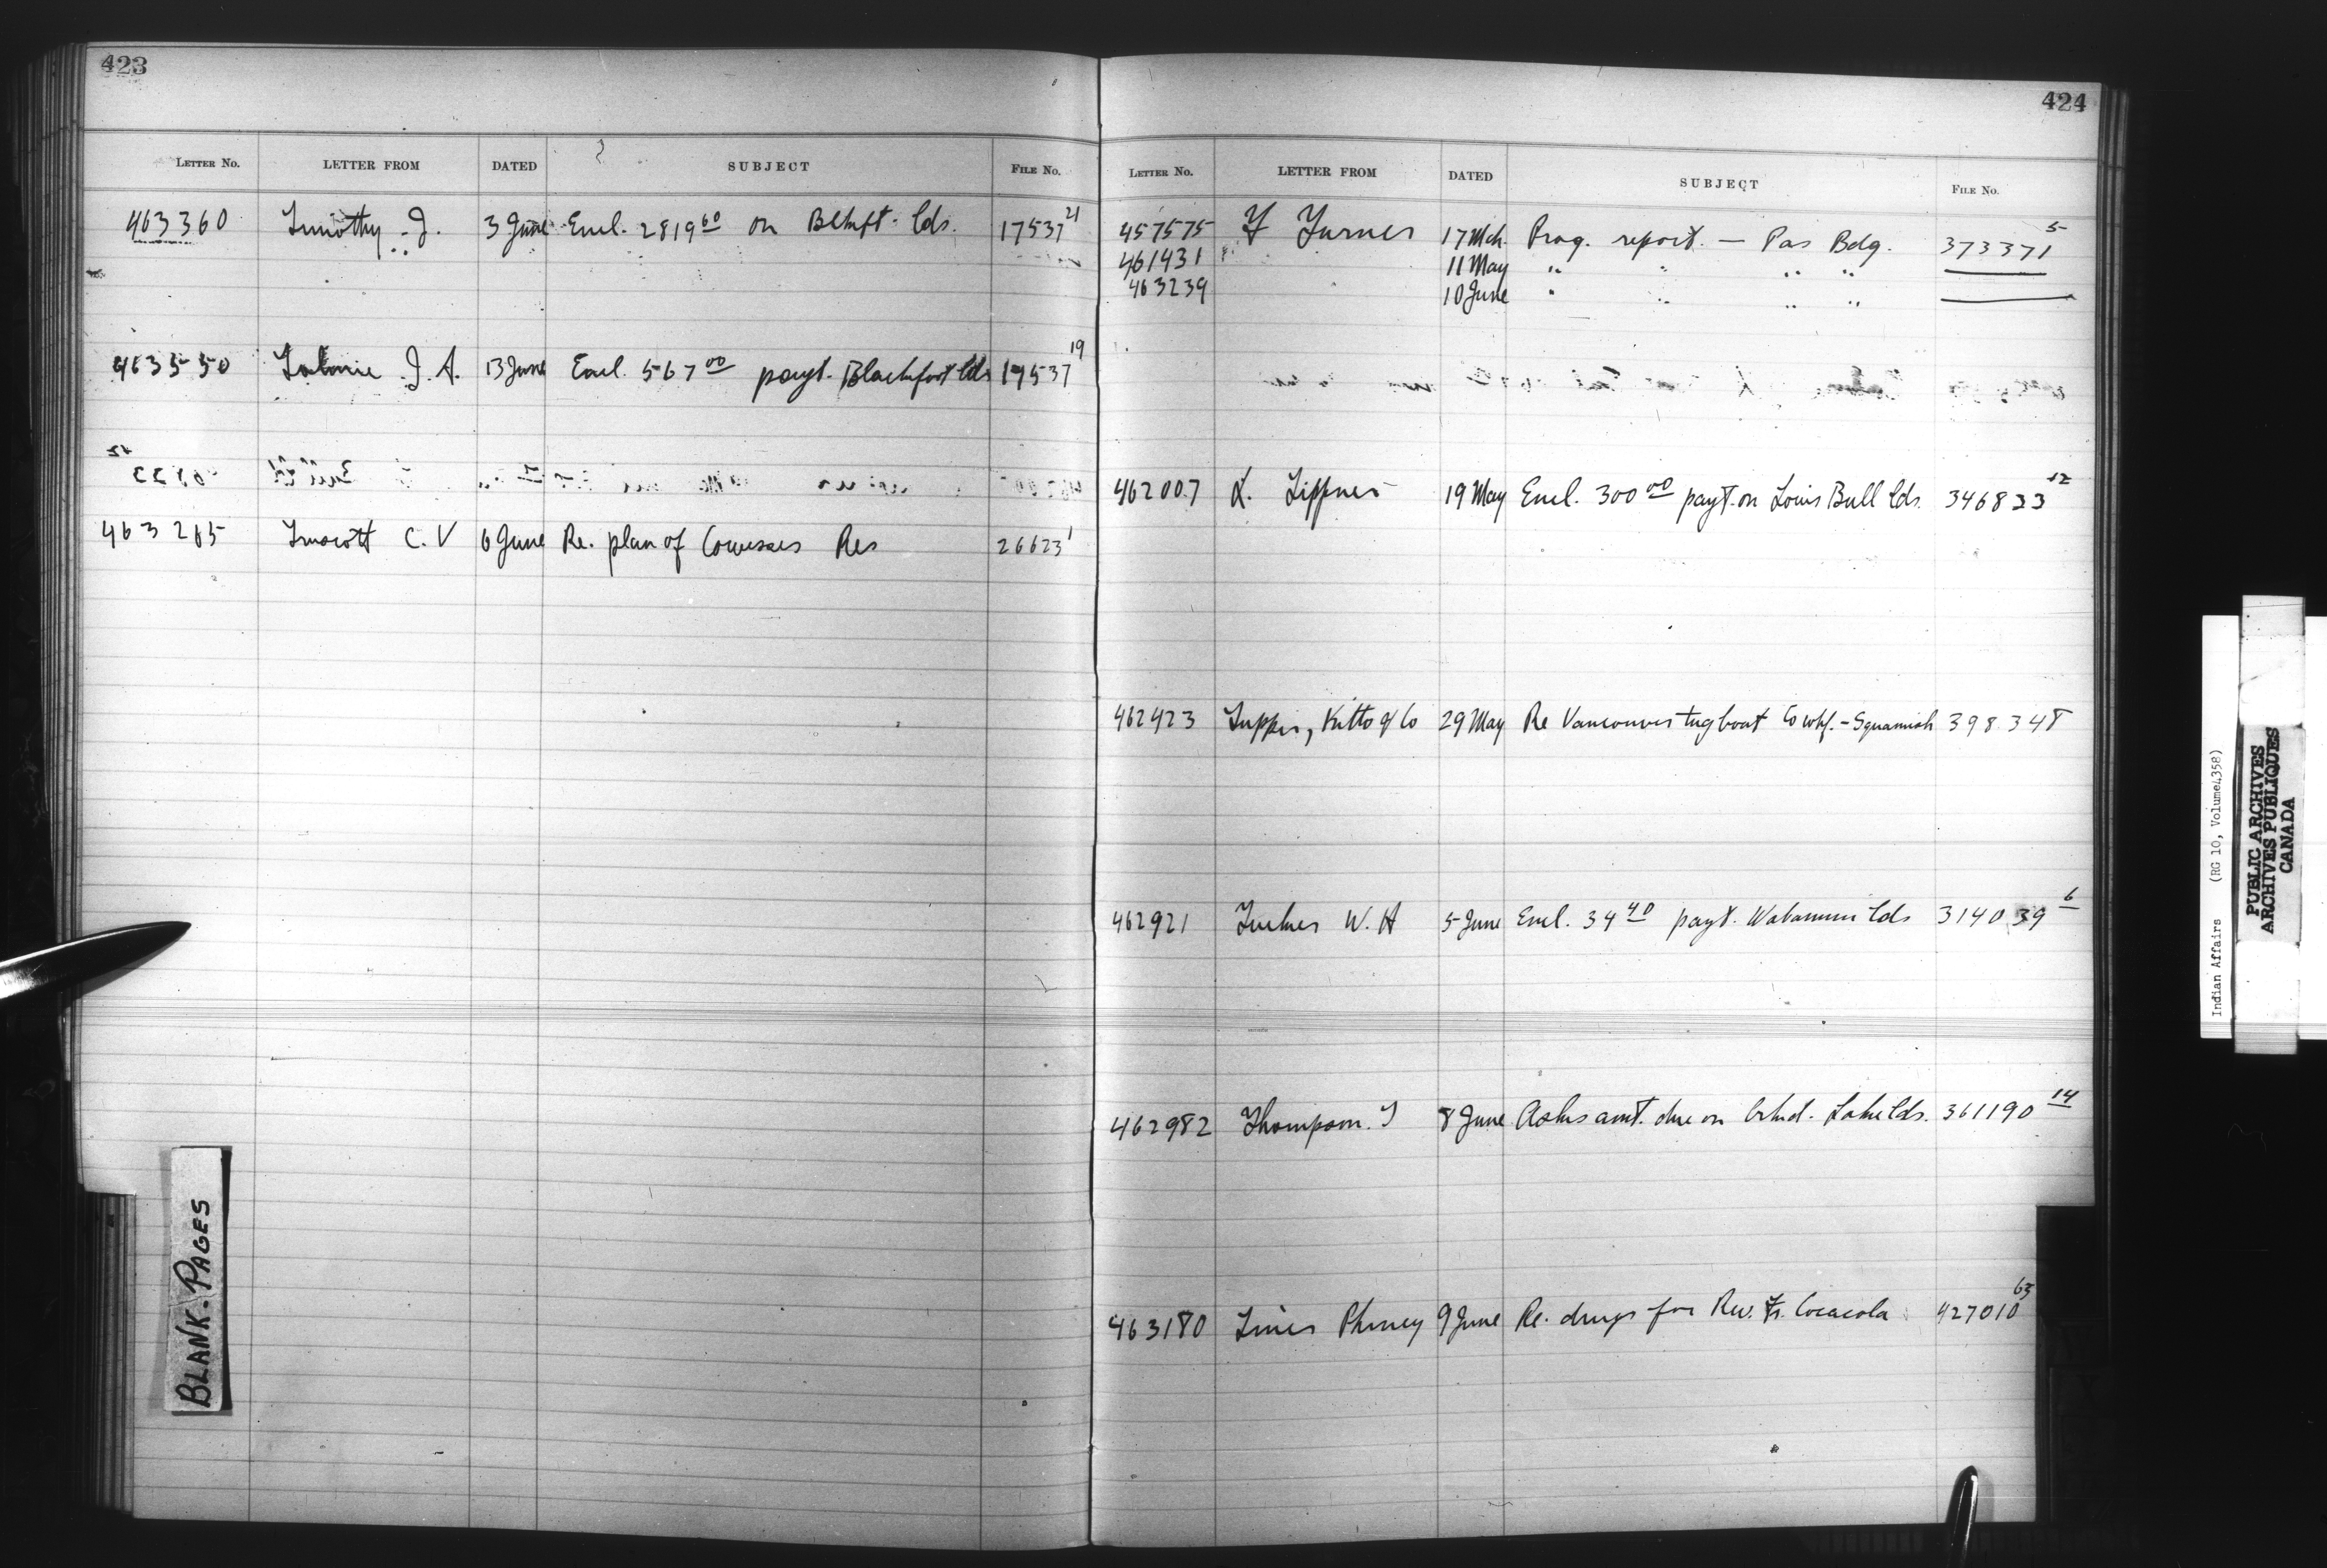 423
LETTER No. LETTER FROM DATED SUBJECT FILE No.
463360 Timothy J. 3 June Encl. 2819 60 on Blkft. lds. 17537 21
463550 J. A. 13 June Encl. 567 00 payt. Blackfoot lds 17537 19
463265 C. V 6 June Re. plan of Cowesses Res 26623 1
424
LETTER No. LETTER FROM DATED SUBJECT FILE No.
457575 F Turner 17 Mch. Prog. report. — Pas Bdg. 373371 5
461431 11 May " " " "
463239 10 June " " " "
462007 L. Tippner 19 May Encl. 300 00 payt. on Louis Bull lds. 346833 12
462423 Tupper, Kitto & Co 29 May Re Vancouver tugboat Co whf. - Squamish 398348
462921 W. H 5 June Encl. 34 40 payt. Wabamun lds 314039 6
462982 Thompson. T 8 June Asks amt. due on Lake lds. 361190 14
463180 Phmcy 9 June Re. drugs for Rev. Fr. Cocacola 427010 63
BLANK. PAGES
Indian Affairs (RG 10, Volume 4358)
PUBLIC ARCHIVES
ARCHIVES PUBLIQUES
CANADA